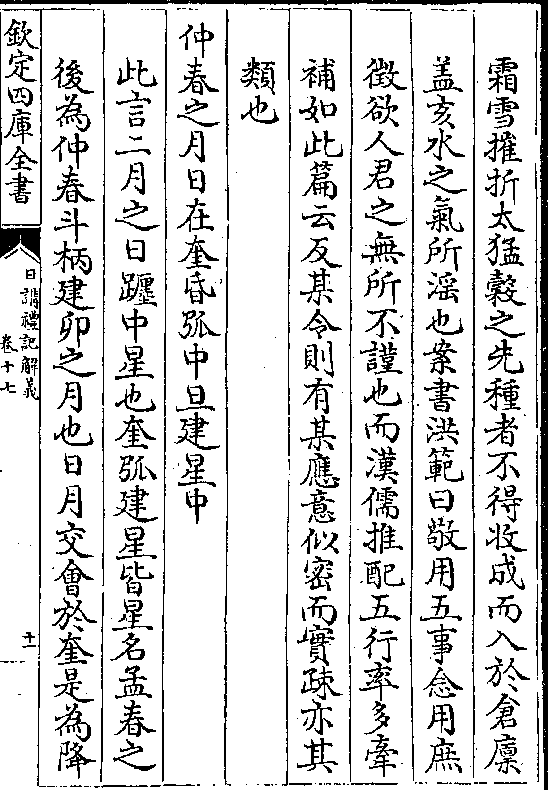 霜雪摧折太猛穀之先種者不得收成而入於倉廩
盖亥水之氣所淫也案書洪範曰敬用五事念用庶
徴欲人君之無所不謹也而漢儒推配五行率多牽
補如此篇云反某令則有某應意似密而實疎亦其
類也
仲春之月日在奎昏弧中旦建星中
此言二月之日躔中星也奎弧建星皆星名孟春之
後為仲春斗柄建卯之月也日月交會於奎是為降
欽定四庫全書
日講禮記解義
卷十七
十一